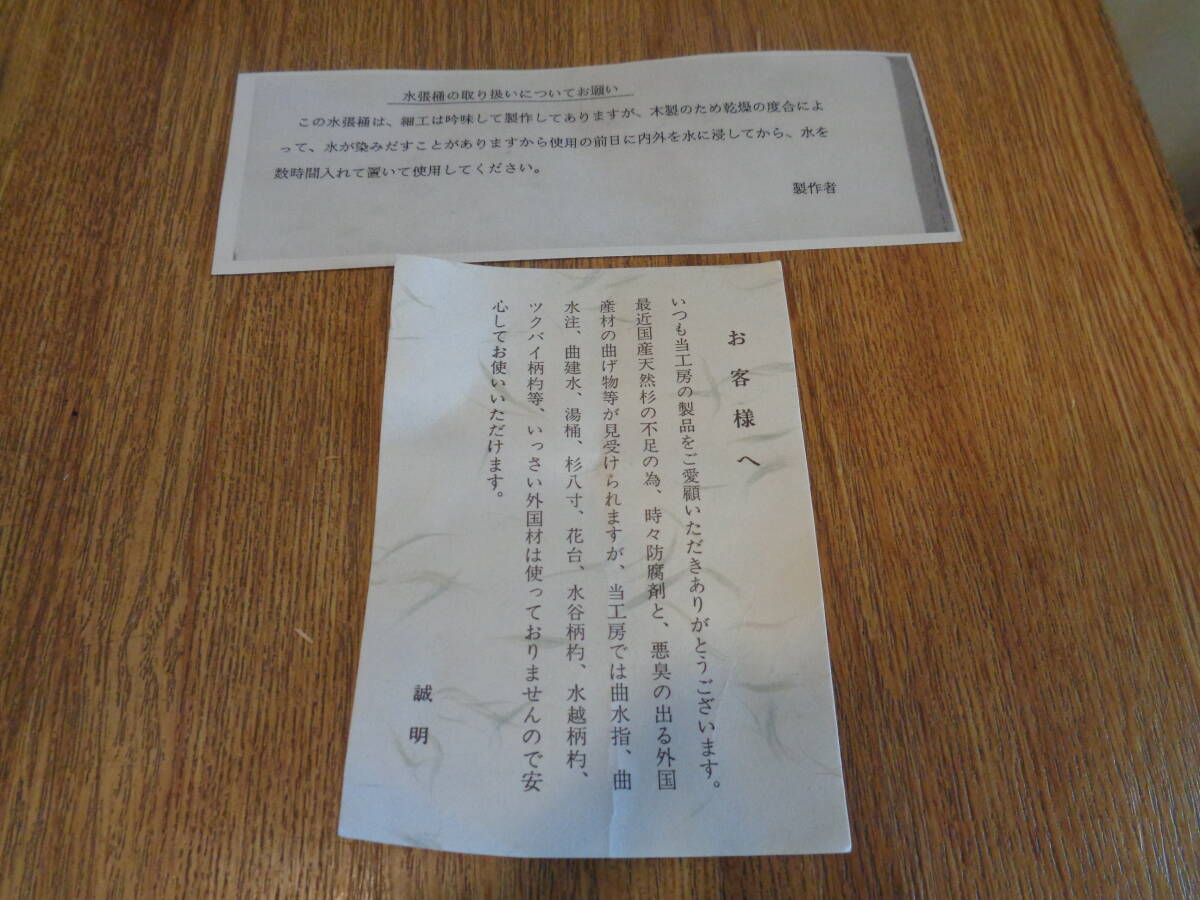 水張桶の取り扱いについてお願い
この水張桶は、細工は吟味して製作してありますが、木製のため乾燥の度合によ
って、水が染みだすことがありますから使用の前日に内外を水に浸してから、水を
数時間入れて置いて使用してください。
製作者
お客様へ
いつも当工房の製品をご愛顧いただきありがとうございます。
最近国産天然杉の不足の為、時々防腐剤と、悪臭の出る外国
産材の曲げ物等が見受けられますが、当工房では曲水指、曲
水注、曲建水、湯桶、杉八寸、花台、水谷柄杓、水越柄杓、
ツクバイ柄杓等、いっさい外国材は使っておりませんので安
心してお使いいただけます。
誠明